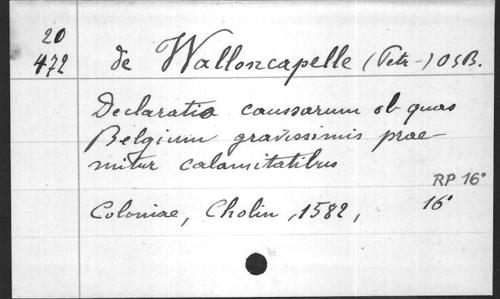 20
472 de Walloncapelle (Petr-) OSB.
Declaratio caussarum ob quas
Belgium gravissimis prae-
mitur calamitatibus
RP 16°
Coloniae, Cholin, 1582, 16°